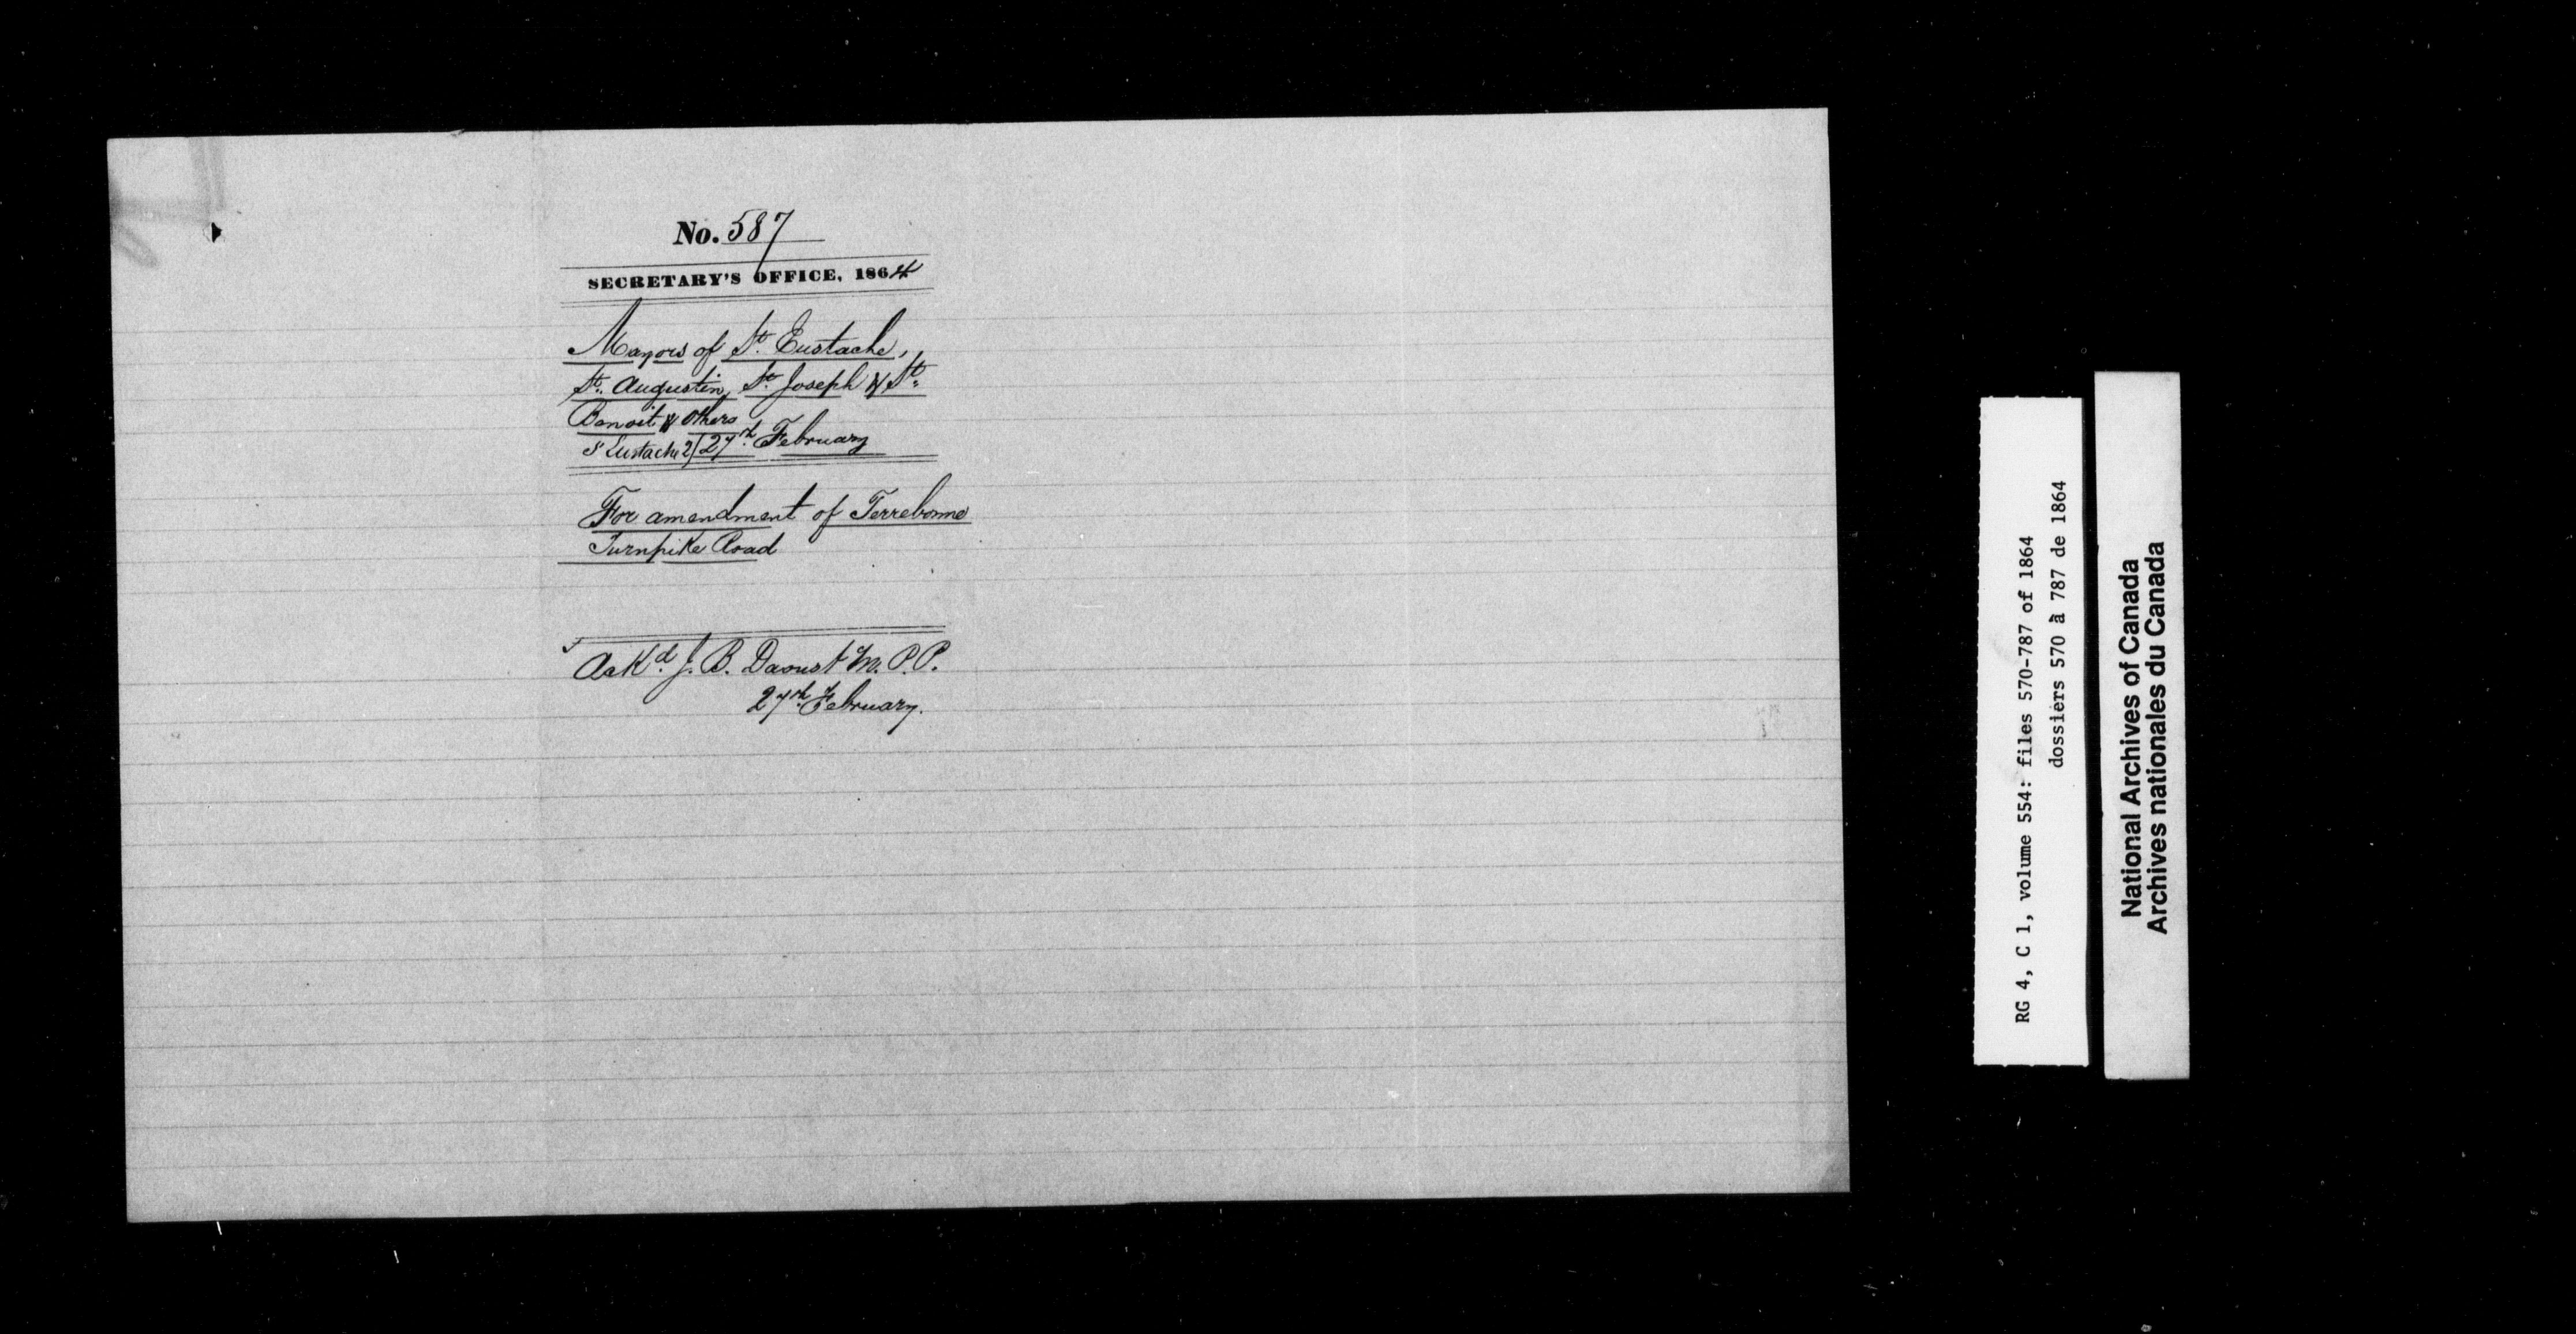 No. 587
SECRETARY'S OFFICE, 1864
Mayors of St. Eustache,
St. Augustin, St. Joseph & St.
Benoit & Others
St Eustache 2/27th February
For amendment of Terrebonne
Turnpike Road
Ackd. J. B. Daoust M.P.P.
27th February.
RG 4, C 1, volume 554: files 570-787 of 1864
dossiers 570 à 787 de 1864
National Archives of Canada
Archives nationales du Canada